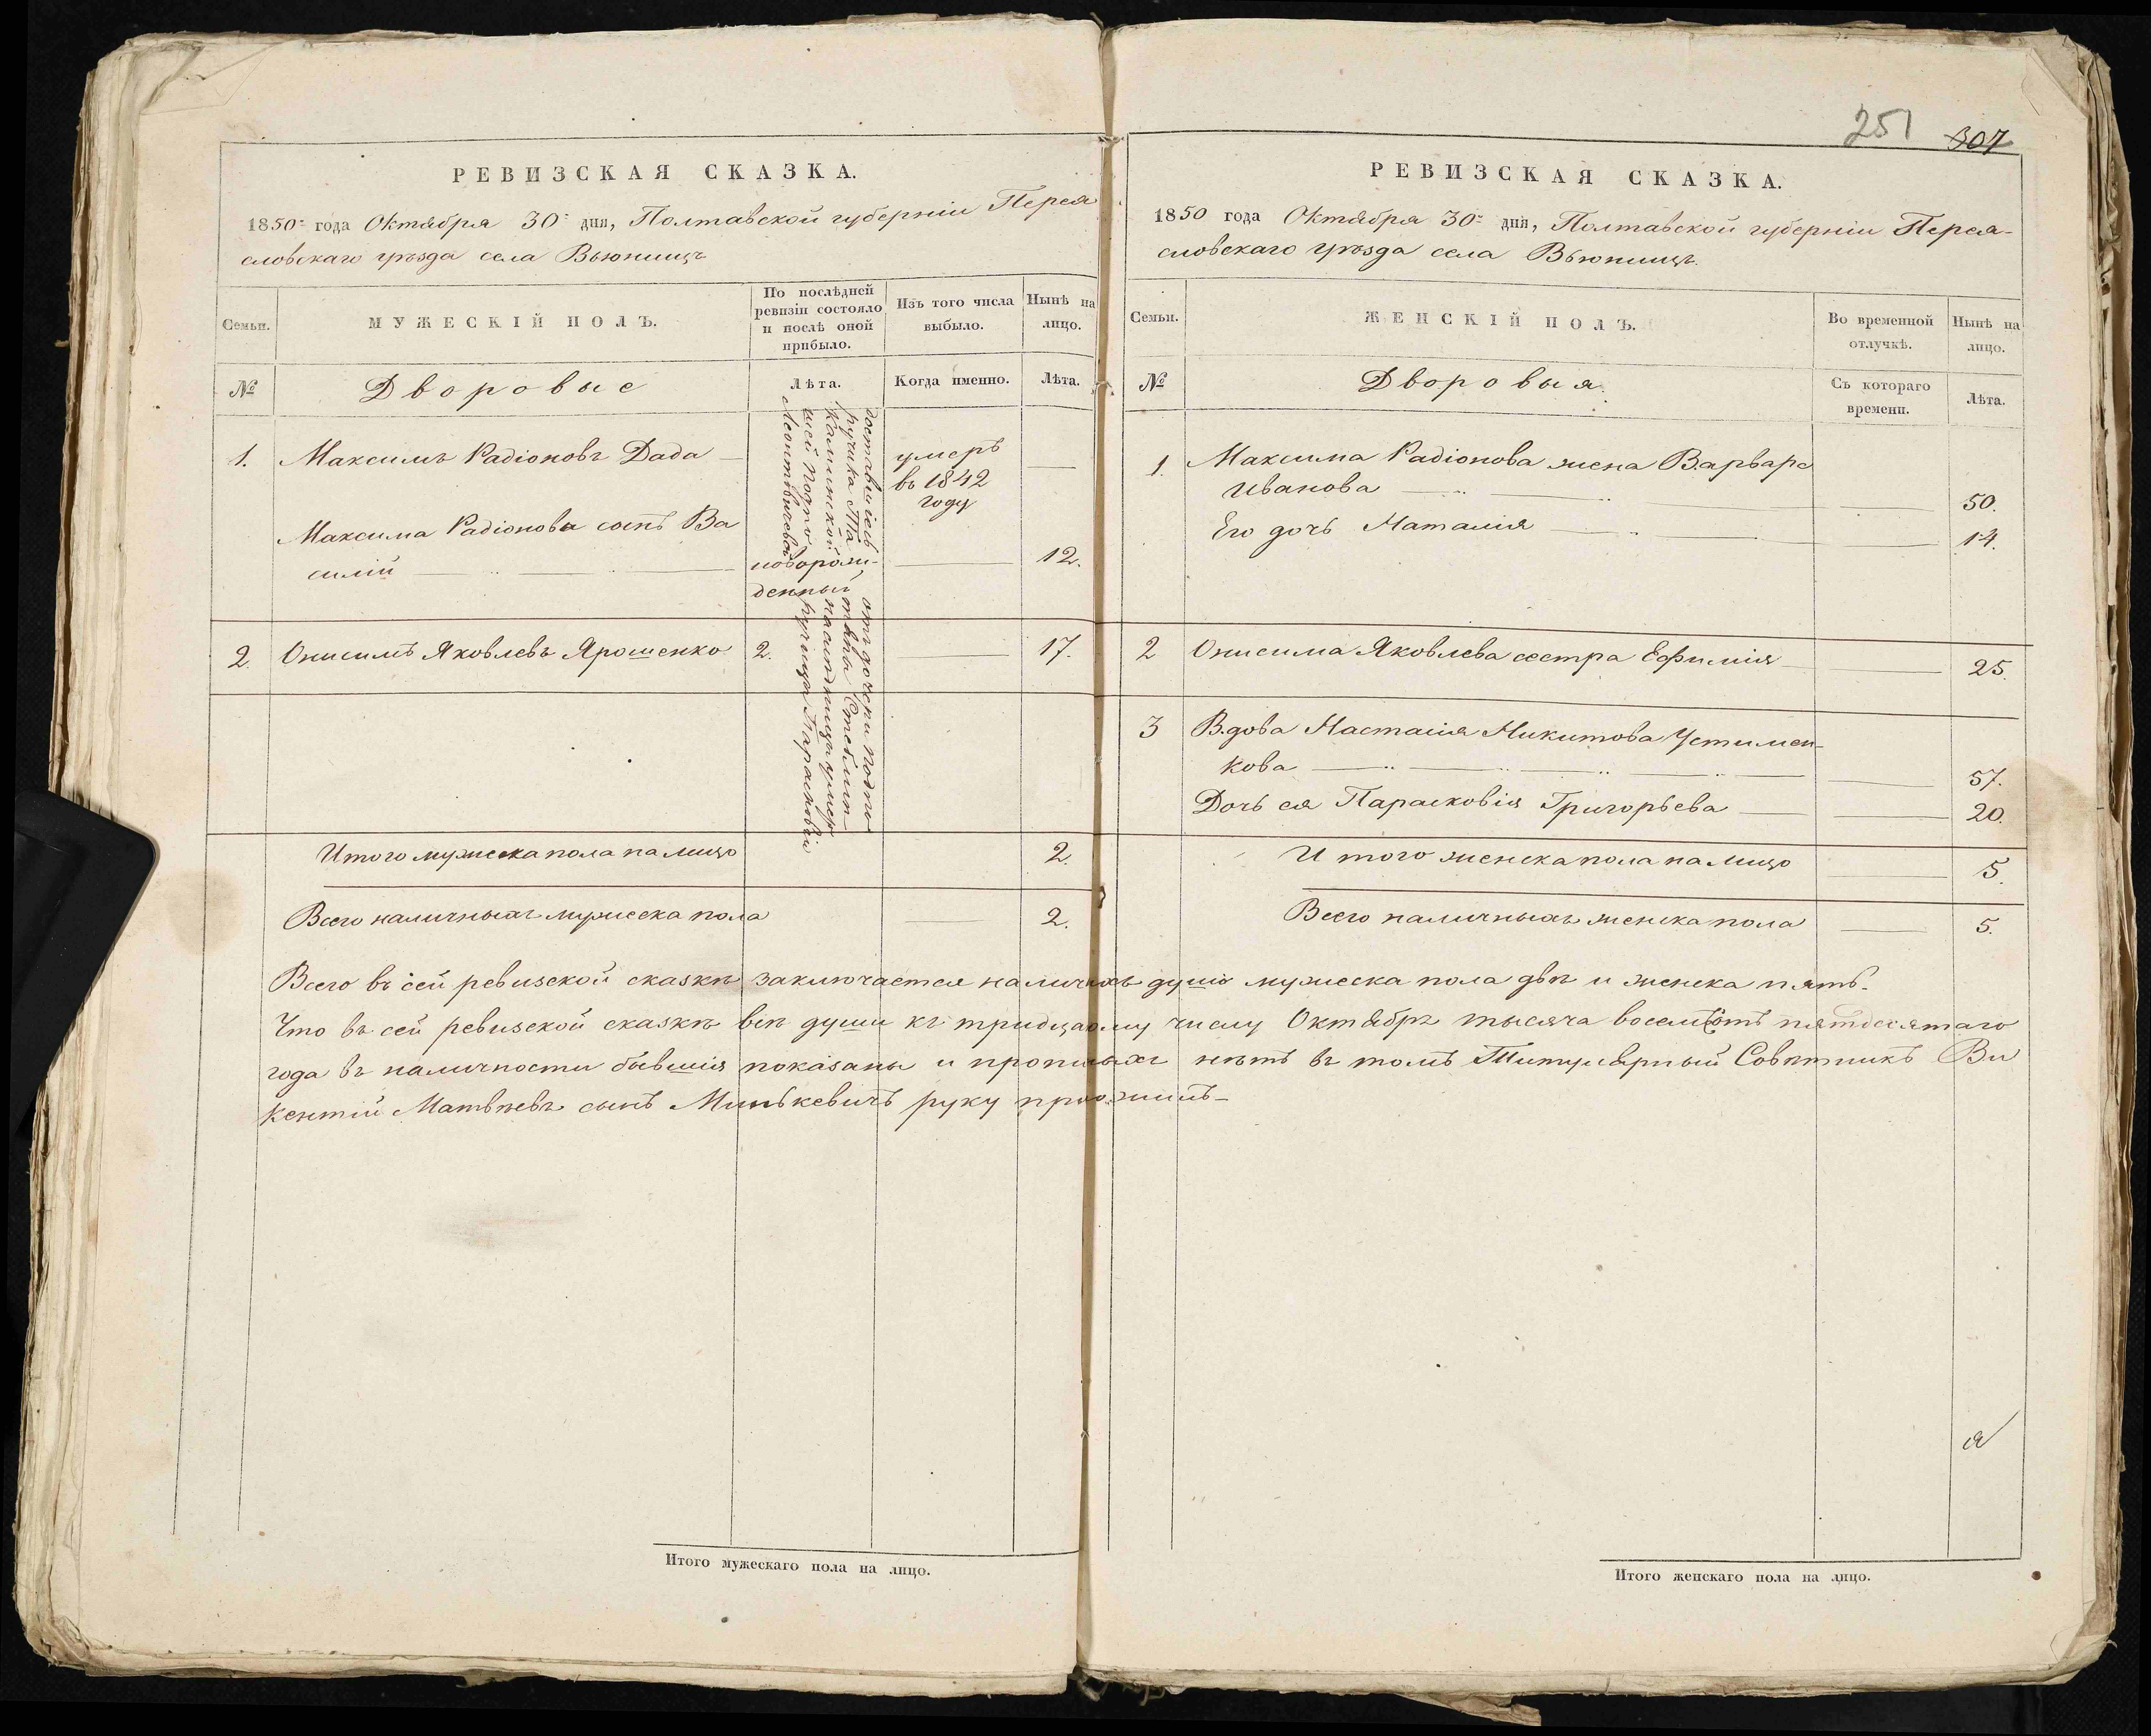 РЕВИЗСКАЯ СКАЗКА.
1850 года Октября 30 дня, Полтавской губерніи Перея
словскаго уѣзда села Вьюнищъ
Семьи.
МУЖЕСКІЙ ПОЛЪ.
По послѣдней
ревизіи состояло
и послѣ оной
прибыло.
Изъ того числа
выбыло.
Нынѣ на
лицо.
№
Дворовые
Лѣта.
Когда именно.
Лѣта.
1. Максимъ Радіоновъ Дада
умеръ
въ 1842
году
Максима Радіонова сынъ Ва
силій
новорож-
денный
12.
2. Онисимъ Яковлевъ Ярошенко 2. 17.
доставшіесь отъ дочери подпо
ручика
Каминской наслѣдницы умер
шей подпо ручицы Парасковіи
Леонтовичевой
Итого мужеска пола на лицо 2.
Всего наличныхъ мужеска пола 2.
251 307
РЕВИЗСКАЯ СКАЗКА.
1850 года Октября 30 дня, Полтавской губерніи Перея-
словскаго уѣзда села Вьюнищъ.
Семьи.
ЖЕНСКІЙ ПОЛЪ.
Во временной
отлучкѣ.
Нынѣ на
лицо.
№
Дворовыя
Съ котораго
времени.
Лѣта.
1. Максима Радіонова жена Варвара
Иванова 50.
Его дочь Наталія 14.
2 Онисима Яковлева сестра Ефимія 25.
3 Вдова Настасія Никитова Устимен-
кова 57.
Дочь ея Парасковія Григорьева 20.
Итого женска пола на лицо 5.
Всего наличныхъ женска пола 5.
Всего въ сей ревизской сказкѣ заключается наличныхъ душъ мужеска пола двѣ и женска пять.
Что въ сей ревизской сказкѣ всѣ души къ тридцатому числу Октября тысяча восемъсотъ пятдесятаго
года въ наличности бывшія показаны и прописныхъ нѣтъ въ томъ Титулярный Совѣтникъ Ви
кентій Матвѣевъ сынъ Минькевичъ руку приложилъ
Итого мужескаго пола на лицо.
Итого женскаго пола на лицо.